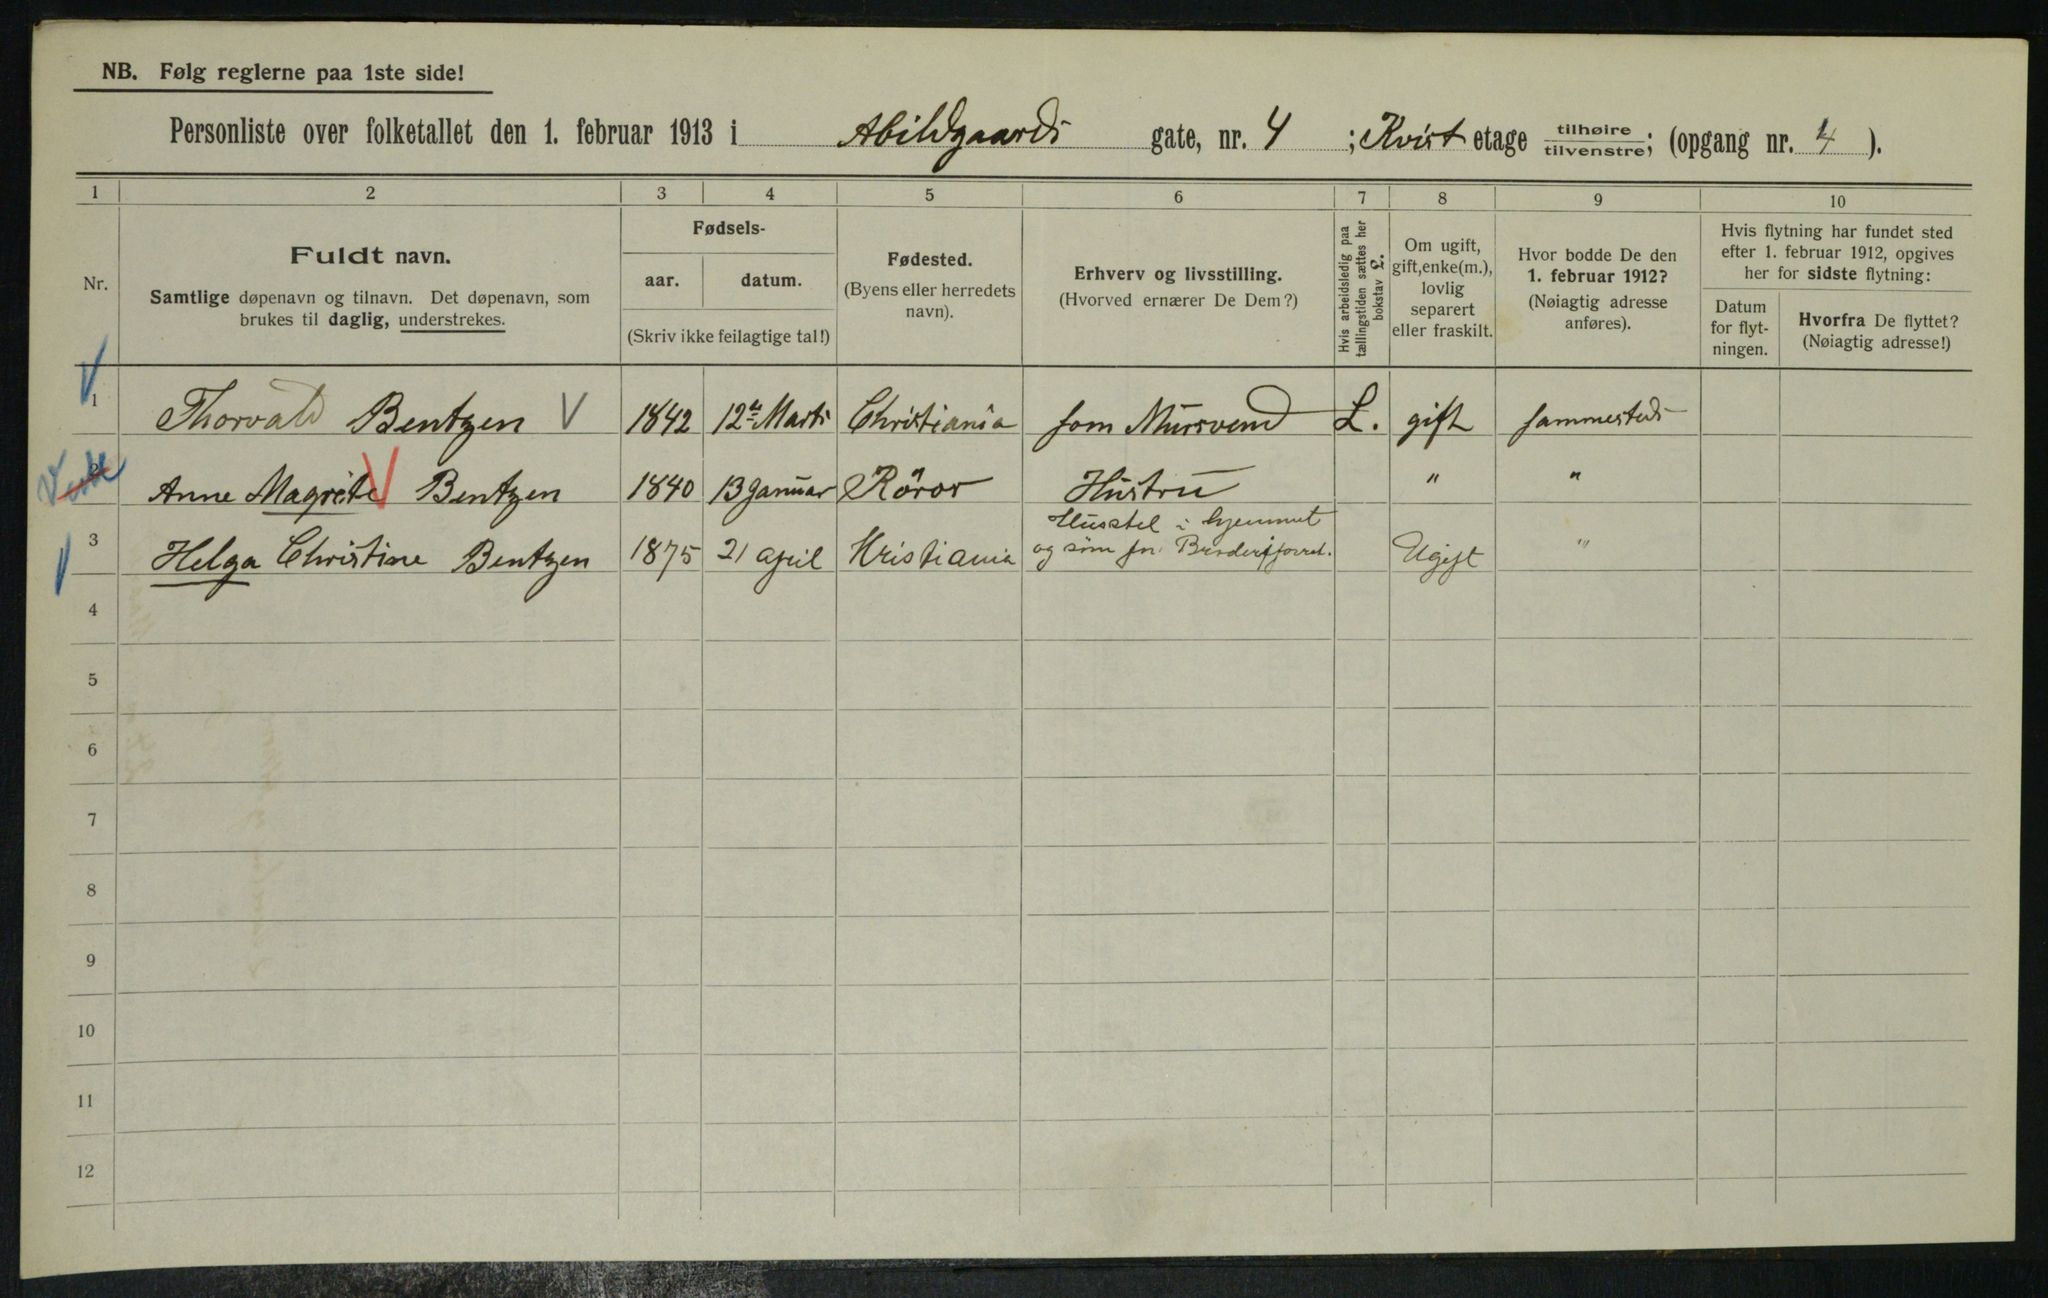 NB. Følg reglerne paa 1ste side!
Personliste over folketallet den 1. februar 1913 i Abildgaards gate, nr. 4 ; Kvist etage tilhøire / tilvenstre; (opgang nr. 4 ).
1 2 3 4 5 6 7 8 9 10
Nr.
Fuldt navn.
Samtlige døpenavn og tilnavn. Det døpenavn, som
brukes til daglig, understrekes.
Fødsels-
aar. datum.
(Skriv ikke feilagtige tal!)
Fødested.
(Byens eller herredets
navn).
Erhverv og livsstilling.
(Hvorved ernærer De Dem?)
Hvis arbeidsledig paa
tællingstiden sættes her
bokstav L.
Om ugift,
gift, enke(m.),
lovlig
separert
eller fraskilt.
Hvor bodde De den
1. februar 1912?
(Nøiagtig adresse
anføres).
Hvis flytning har fundet sted
efter 1. februar 1912, opgives
her for sidste flytning:
Datum
for flyt-
ningen.
Hvorfra De flyttet?
(Nøiagtig adresse!)
1 Thorvald Bentzen V 1842 12te Marts Christiania som Mursvend L. gift sammesteds
2 Anne Magrete V Bentzen 1840 13 Januar Röros Hustru " "
Husstel i hjemmet
3 Helga Christine Bentzen 1875 21 april Kristiania og søm for Ugift "
4
5
6
7
8
9
10
11
12